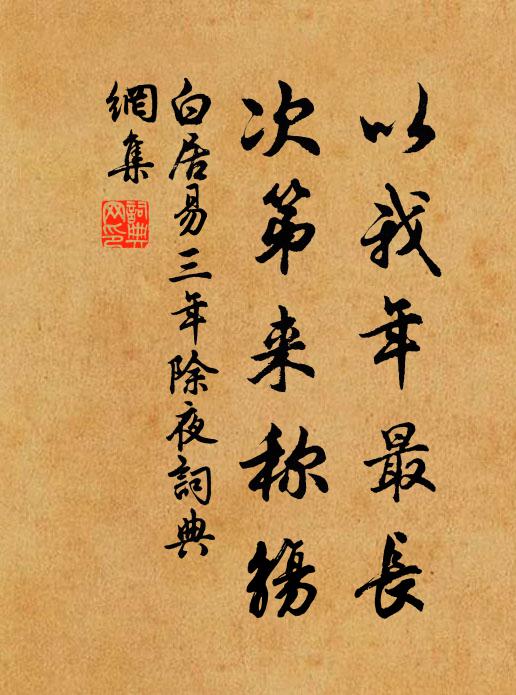 以我年最長
次第来称觴
白居易三年除夜詞典
網集
詞典
网印